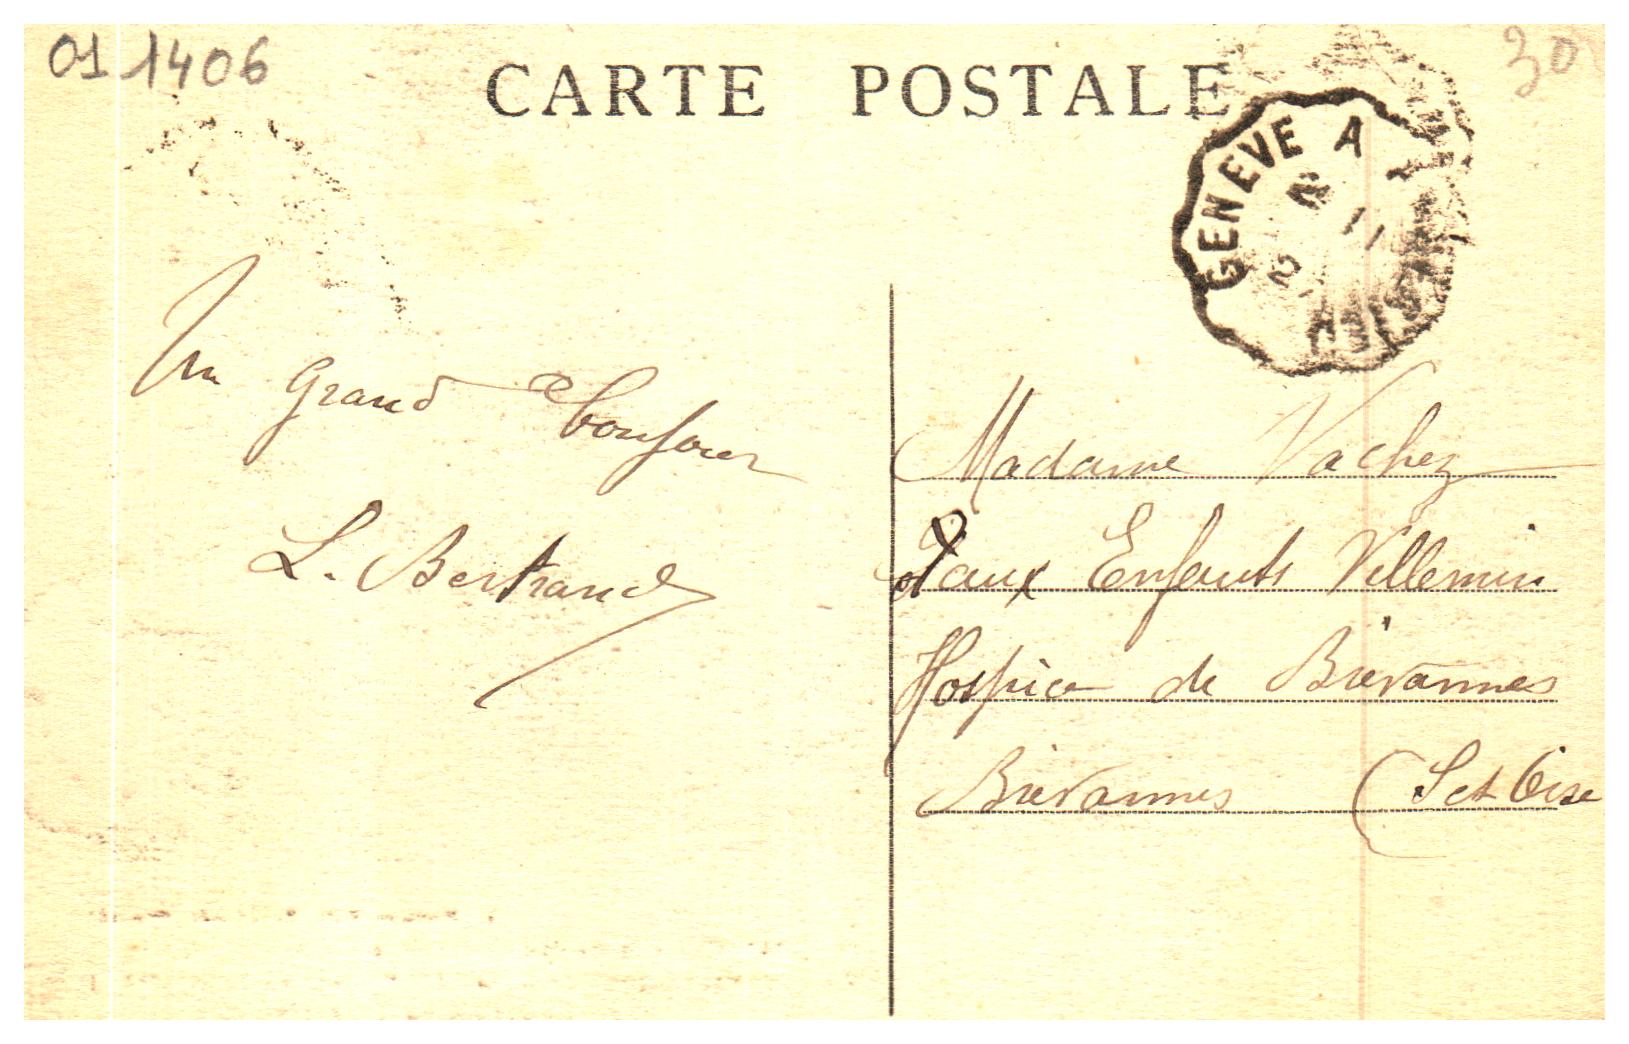 01 1406
30
CARTE POSTALE
GENEVE A
Un grand bonjour
L. Bertrand
Madame Vachez
aux Enfants Villemin
Hospice de Brévannes
Brévannes (S et Oise